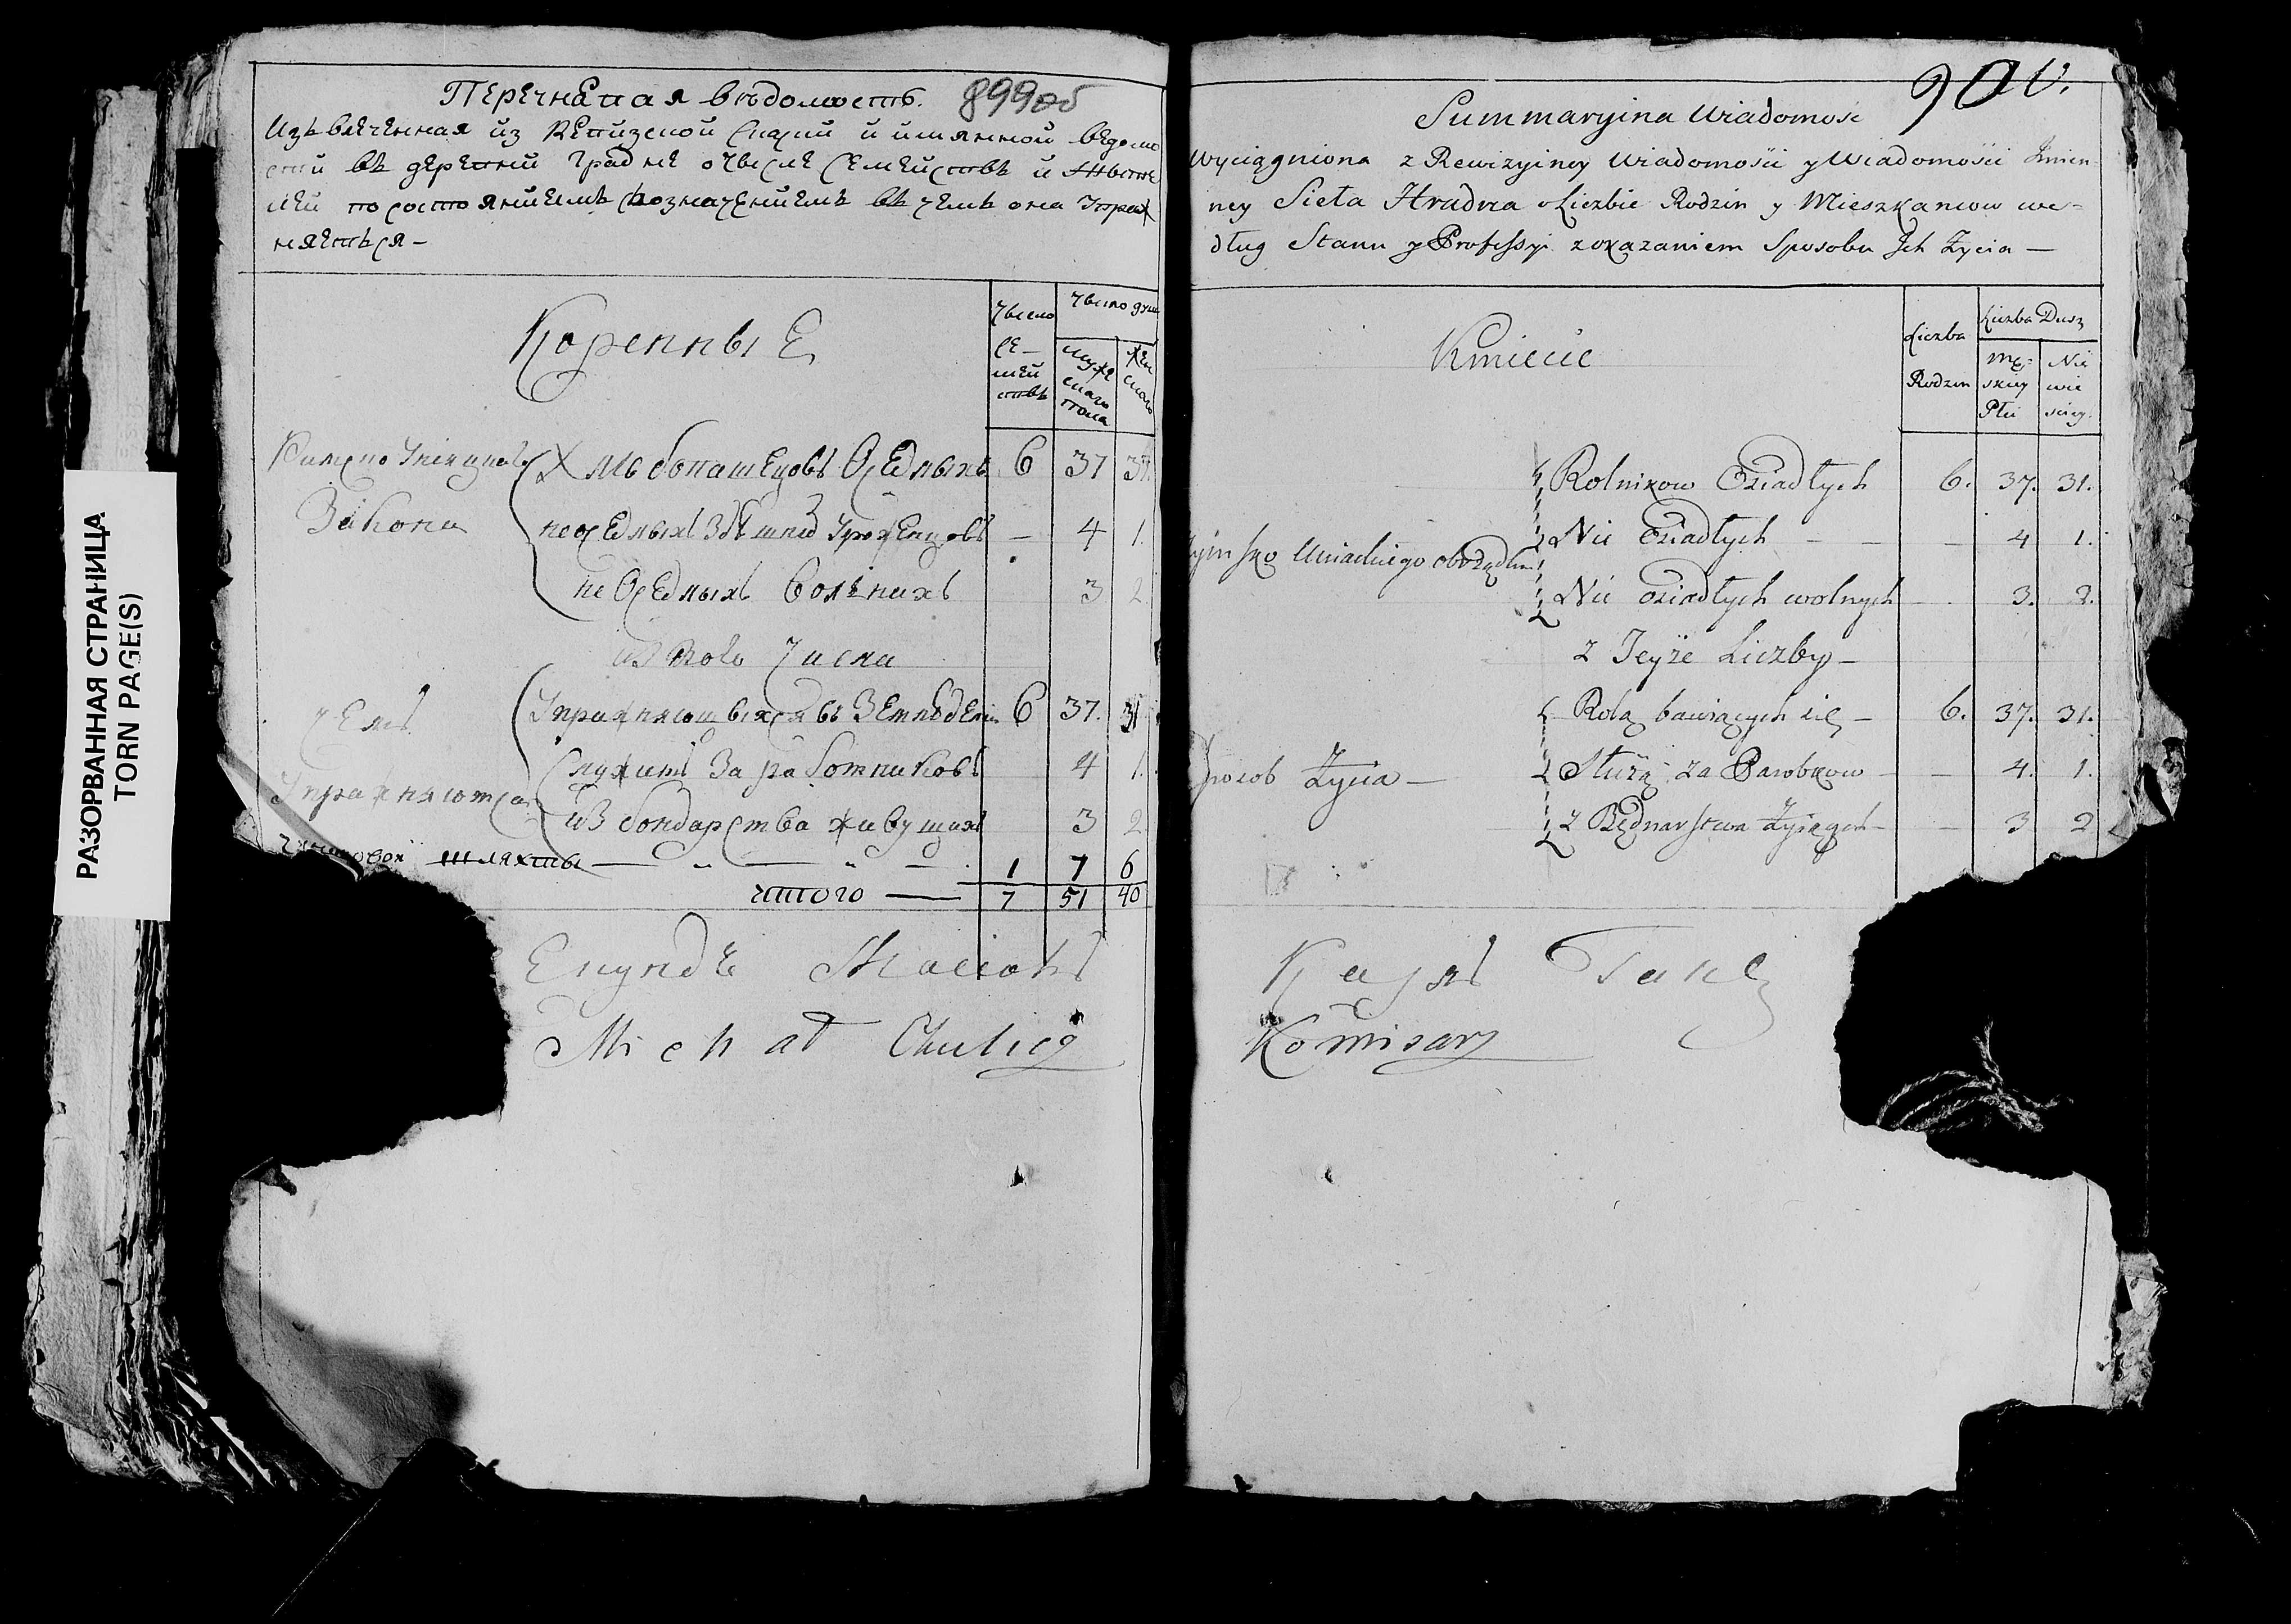 РАЗОРВАННАЯ СТРАНИЦА
TORN PAGE(S)
Перечневая вѣдомость. 899об
Извлеченная из Ревизской Скаски и имянной ведомо
сти въ деревни Градне о числе Семействъ и
лей по состояниемъ созначениемъ въ чемъ она Упраж
няется –
Коренные
Число Семействъ
Число душ
Мужескаго пола
Женскаго
Римско Униацкаго Закона
Хлѣбопашецовъ Оседлыхъ 6 37 31.
неоседлыхъ Здѣшнихъ Уроженцовъ – 4 1.
не Оседлыхъ Вольныхъ 3 2.
изъ того Числа
чемъ Упражняются
Упражняющихся въ Земледелии 6 37. 31
Служитъ За работниковъ 4 1.
изъ бондарства живущихъ 3 2.
Чиншовой шляхты — „ — „ — 1 7 6
итого — 7 51 40
Michał
900.
Summaryina Wiadomość
Wyciągniona z Rewizyiney Wiadomości y Wiadomości Imien-
ney Sieła Hradna o Liczbie Rodzin y Mieszkancow we-
dług Stanu y Professyi z okazaniem Sposobu Ich Życia —
Kmiecie
Liczba Rodzin
Liczba Dusz
Mę-
skiey
Płci
Nie
wie
sciey.
Rolnikow Osiadłych 6. 37. 31.
Nie Osiadłych – – – 4 1.
Uniackiego obrządku
Nie osiadłych wolnych – 3. 2.
z Teyże Liczby –
Rolą bawiących się – 6. 37. 31.
Sposob Życia —
Służą za Parobkow – – 4. 1.
z Bednarstwa Żyiących – – 3 2
Komisarz